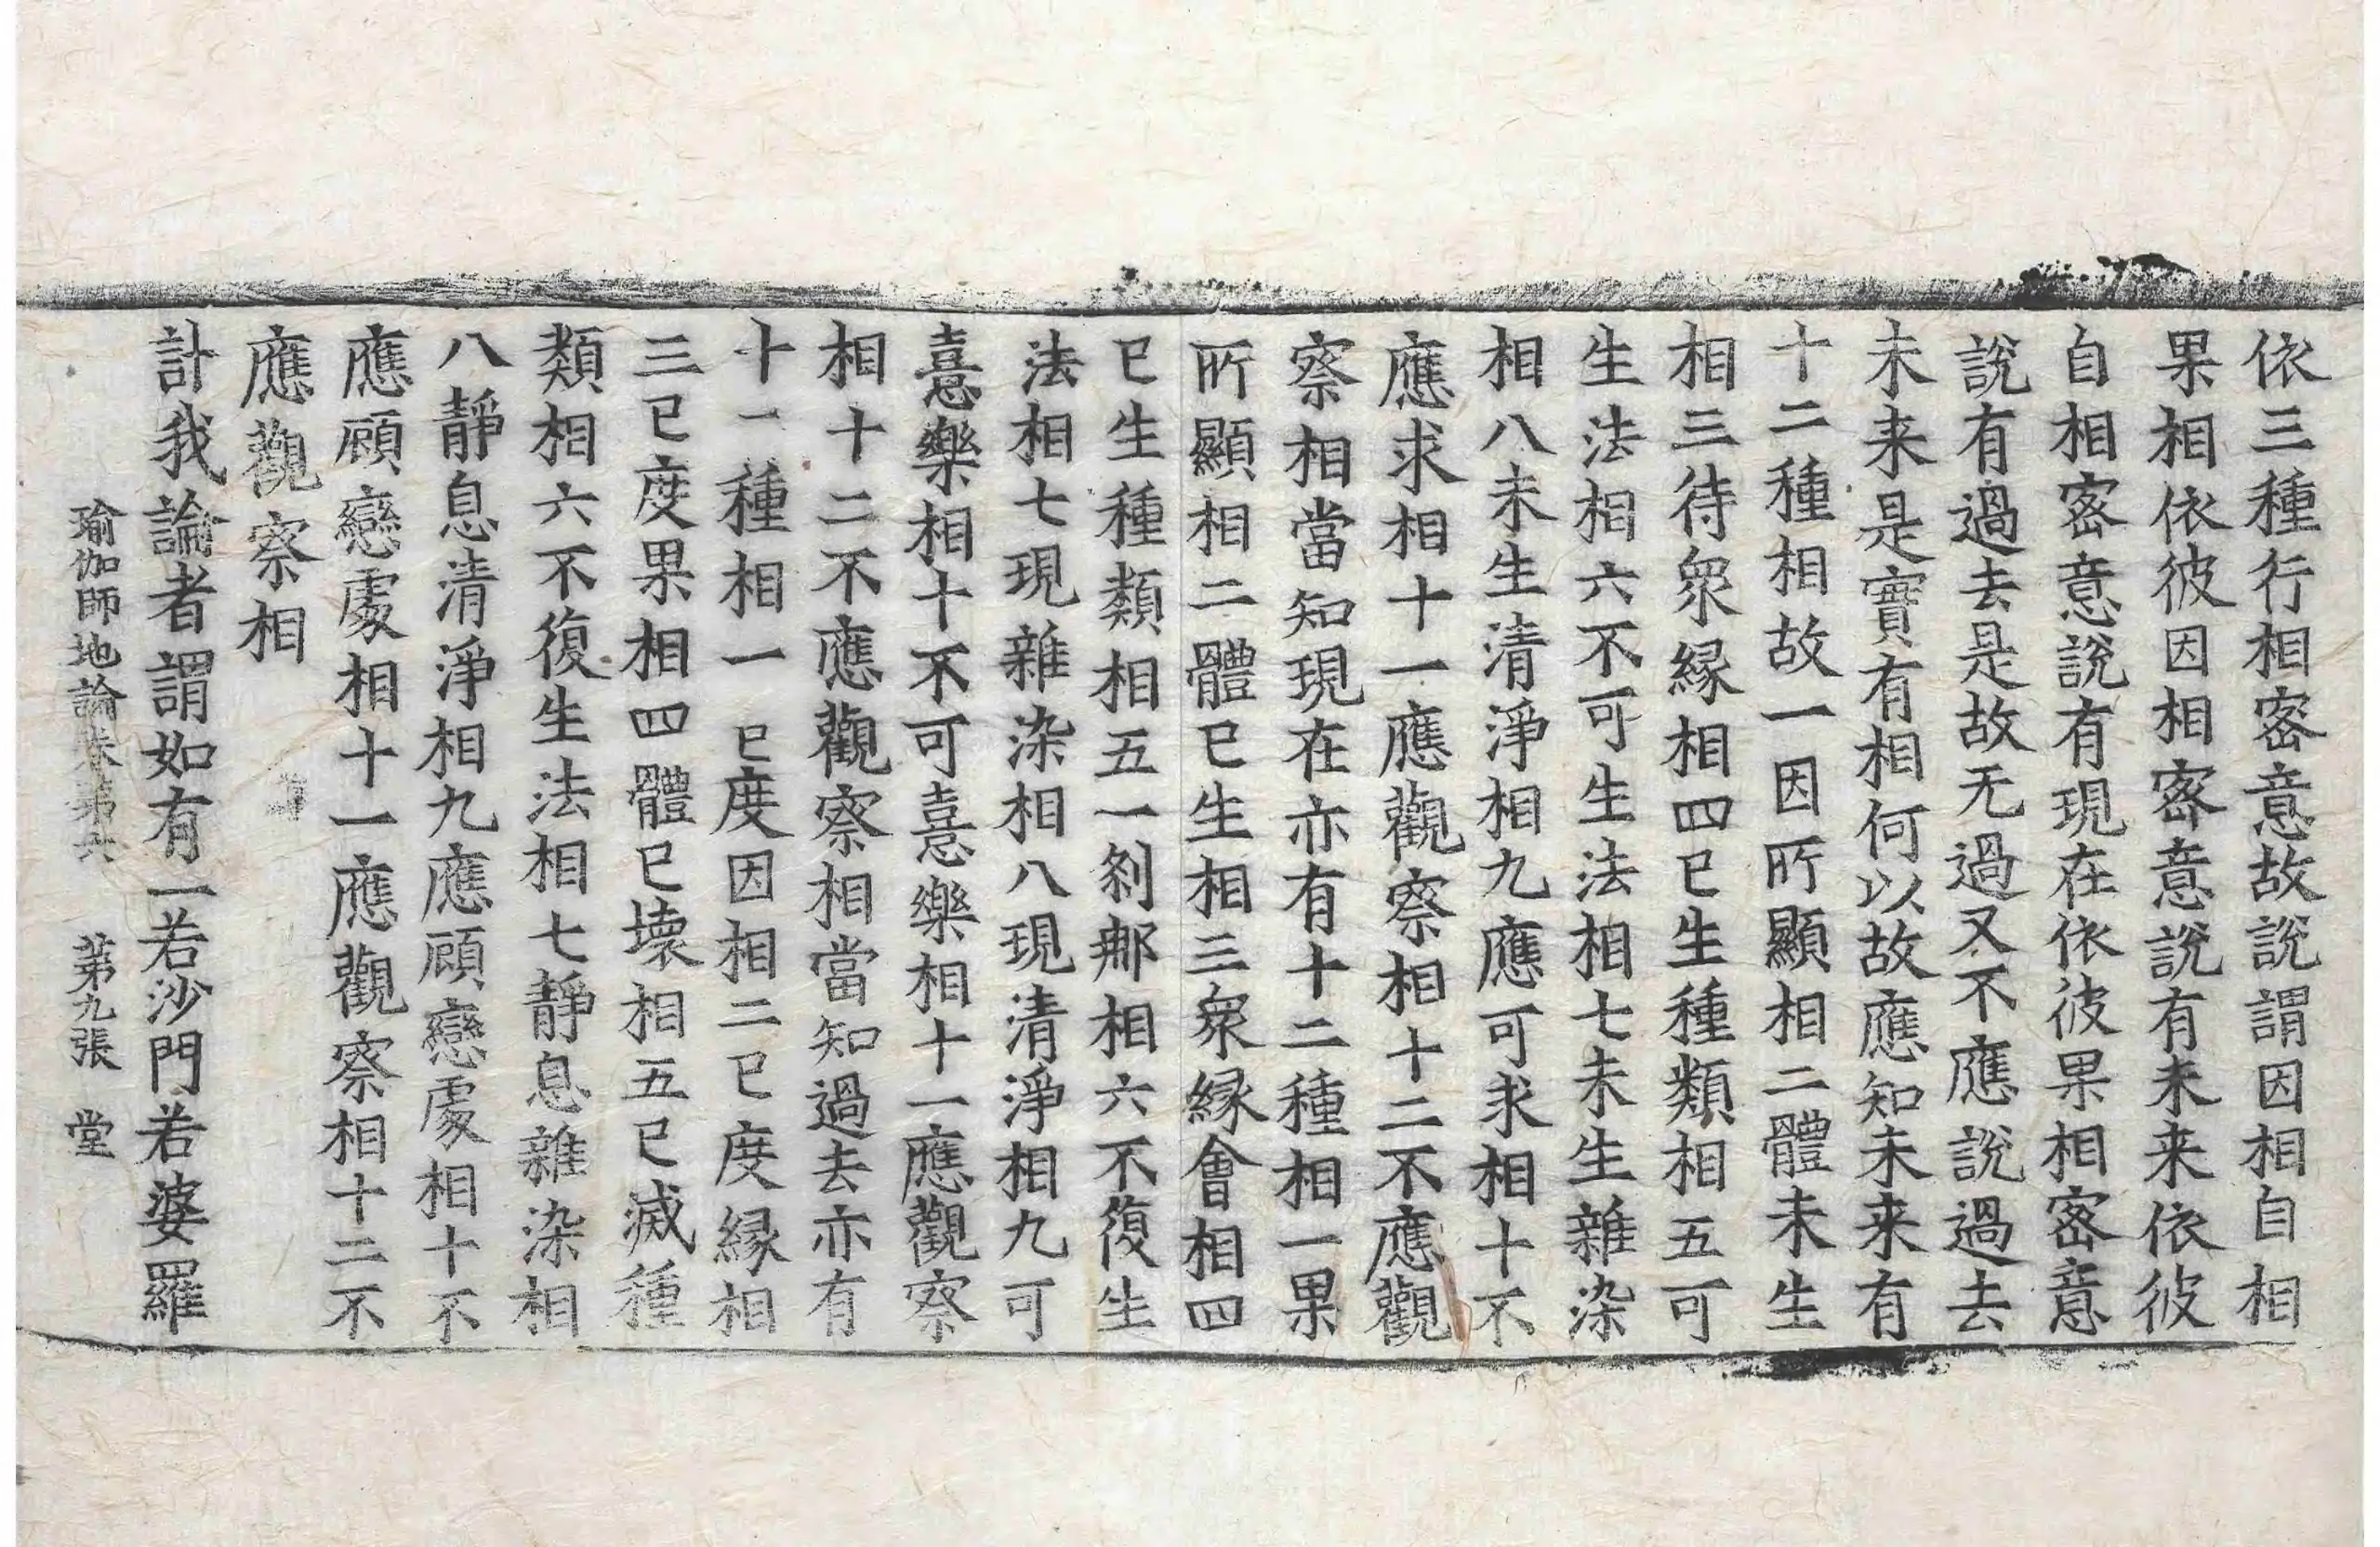 依三種行相密意故說謂因相自相
果相依彼因相密意說有未来依彼
自相密意說有現在依彼果相密意
說有過去是故无過又不應說過去
未来是實有相何以故應知未来有
十二種相故一因所顯相二體未生
相三待衆縁相四已生種類相五可
生法相六不可生法相七未生雜染
相八未生清淨相九應可求相十不
應求相十一應觀察相十二不應觀
察相當知現在亦有十二種相一果
所顯相二體已生相三衆縁會相四
已生種類相五一刹那相六不復生
法相七現雜染相八現清淨相九可
憙樂相十不可憙樂相十一應觀察
相十二不應觀察相當知過去亦有
十一種相一已度因相二已度縁相
三已度果相四體已壞相五已滅種
類相六不復生法相七靜息雜染相
八靜息清淨相九應顧戀處相十不
應顧戀處相十一應觀察相十二不
應觀察相
計我論者謂如有一若沙門若婆羅
瑜伽師地論卷第六 第九張 堂